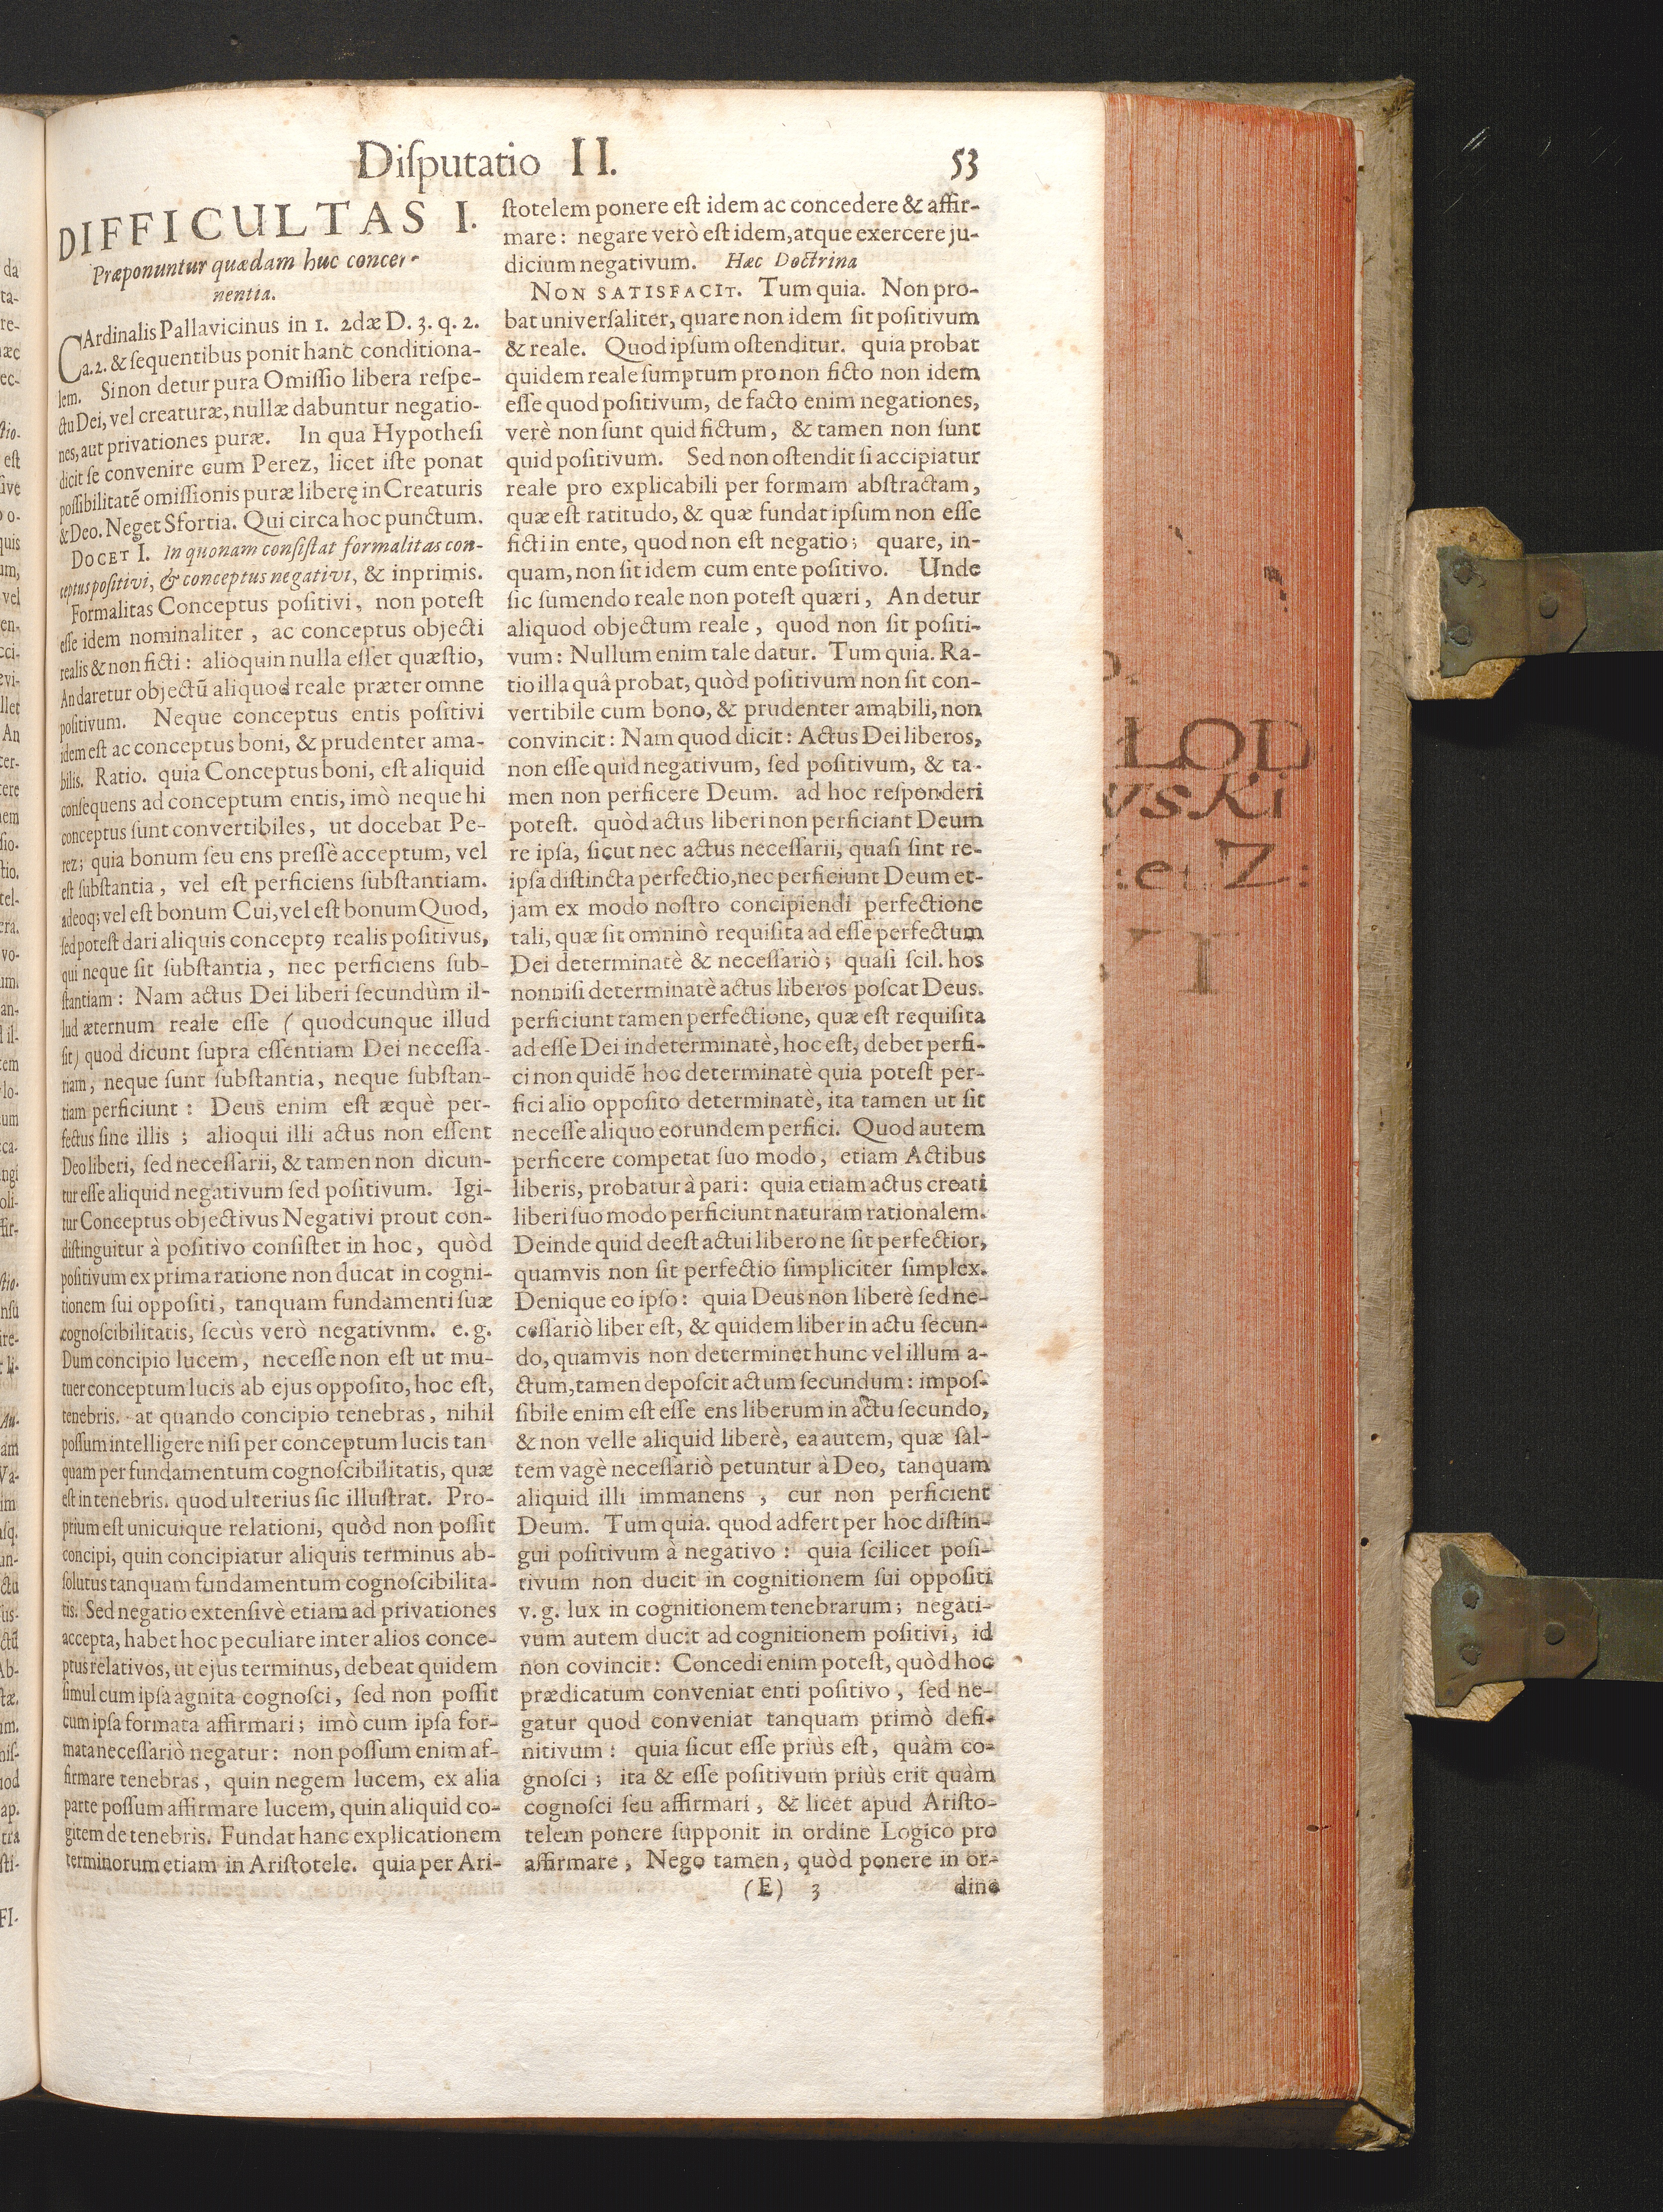 Diſputatio II.
53
DIFFICULTAS I.
Præponuntur quædam huc concer-
nentia.
CArdinalis Pallavicinus in 1. 2dæ D. 3. q. 2.
a. 2. & ſequentibus ponit hanc conditiona-
lem. Si non detur pura Omiſſio libera reſpe-
ctu Dei, vel creaturæ, nullæ dabuntur negatio-
nes, aut privationes puræ. In qua Hypotheſi
dicit ſe convenire cum Perez, licet iſte ponat
poſſibilitatẽ omiſſionis puræ liberę in Creaturis
& Deo. Neget Sfortia. Qui circa hoc punctum.
DOCET I. In quonam conſiſtat formalitas con-
ceptus poſitivi, & conceptus negativi, & inprimis.
Formalitas Conceptus poſitivi, non poteſt
eſſe idem nominaliter, ac conceptus objecti
realis & non ficti: alioquin nulla eſſet quæſtio,
An daretur objectũ aliquod reale præter omne
poſitivum. Neque conceptus entis poſitivi
idem eſt ac conceptus boni, & prudenter ama-
bilis. Ratio. quia Conceptus boni, eſt aliquid
conſequens ad conceptum entis, imò neque hi
conceptus ſunt convertibiles, ut docebat Pe-
rez; quia bonum ſeu ens preſſè acceptum, vel
eſt ſubſtantia, vel eſt perficiens ſubſtantiam.
adeoq; vel eſt bonum Cui, vel eſt bonum Quod,
ſed poteſt dari aliquis concept9 realis poſitivus,
qui neque ſit ſubſtantia, nec perficiens ſub-
ſtantiam: Nam actus Dei liberi ſecundùm il-
lud æternum reale eſſe (quodcunque illud
ſit) quod dicunt ſupra eſſentiam Dei neceſſa-
riam, neque ſunt ſubſtantia, neque ſubſtan-
tiam perficiunt: Deus enim eſt æquè per-
fectus ſine illis; alioqui illi actus non eſſent
Deo liberi, ſed neceſſarii, & tamen non dicun-
tur eſſe aliquid negativum ſed poſitivum. Igi-
tur Conceptus objectivus Negativi prout con-
diſtinguitur à poſitivo conſiſtet in hoc, quòd
poſitivum ex prima ratione non ducat in cogni-
tionem ſui oppoſiti, tanquam fundamenti ſuæ
cognoſcibilitatis, ſecùs verò negativnm. e. g.
Dum concipio lucem, neceſſe non eſt ut mu-
tuer conceptum lucis ab ejus oppoſito, hoc eſt,
tenebris. at quando concipio tenebras, nihil
poſſum intelligere niſi per conceptum lucis tan
quam per fundamentum cognoſcibilitatis, quæ
eſt in tenebris. quod ulterius ſic illuſtrat. Pro-
prium eſt unicuique relationi, quòd non poſſit
concipi, quin concipiatur aliquis terminus ab-
ſolutus tanquam fundamentum cognoſcibilita-
tis. Sed negatio extenſivè etiam ad privationes
accepta, habet hoc peculiare inter alios conce-
ptus relativos, ut ejus terminus, debeat quidem
ſimul cum ipſa agnita cognoſci, ſed non poſſit
cum ipſa formata affirmari; imò cum ipſa for-
mata neceſſariò negatur: non poſſum enim af-
firmare tenebras, quin negem lucem, ex alia
parte poſſum affirmare lucem, quin aliquid co-
gitem de tenebris. Fundat hanc explicationem
terminorum etiam in Ariſtotele. quia per Ari-
ſtotelem ponere eſt idem ac concedere & affir-
mare: negare verò eſt idem, atque exercere ju-
dicium negativum. Hæc Doctrina
NON SATISFACIT. Tum quia. Non pro-
bat univerſaliter, quare non idem ſit poſitivum
& reale. Quod ipſum oſtenditur. quia probat
quidem reale ſumptum pro non ficto non idem
eſſe quod poſitivum, de facto enim negationes,
verè non ſunt quid fictum, & tamen non ſunt
quid poſitivum. Sed non oſtendit ſi accipiatur
reale pro explicabili per formam abſtractam,
quæ eſt ratitudo, & quæ fundat ipſum non eſſe
ficti in ente, quod non eſt negatio; quare, in-
quam, non ſit idem cum ente poſitivo. Unde
ſic ſumendo reale non poteſt quæri, An detur
aliquod objectum reale, quod non ſit poſiti-
vum: Nullum enim tale datur. Tum quia. Ra-
tio illa quâ probat, quòd poſitivum non ſit con-
vertibile cum bono, & prudenter amabili, non
convincit: Nam quod dicit: Actus Dei liberos,
non eſſe quid negativum, ſed poſitivum, & ta-
men non perficere Deum. ad hoc reſponderi
poteſt. quòd actus liberi non perficiant Deum
re ipſa, ſicut nec actus neceſſarii, quaſi ſint re-
ipſa diſtincta perfectio, nec perficiunt Deum et-
jam ex modo noſtro concipiendi perfectione
tali, quæ ſit omninò requiſita ad eſſe perfectum
Dei determinatè & neceſſariò; quaſi ſcil. hos
nonniſi determinatè actus liberos poſcat Deus.
perficiunt tamen perfectione, quæ eſt requiſita
ad eſſe Dei indeterminatè, hoc eſt, debet perfi-
ci non quidẽ hoc determinatè quia poteſt per-
fici alio oppoſito determinatè, ita tamen ut ſit
neceſſe aliquo eorundem perfici. Quod autem
perficere competat ſuo modo, etiam Actibus
liberis, probatur à pari: quia etiam actus creati
liberi ſuo modo perficiunt naturam rationalem.
Deinde quid deeſt actui libero ne ſit perfectior,
quamvis non ſit perfectio ſimpliciter ſimplex.
Denique eo ipſo: quia Deus non liberè ſed ne-
ceſſariò liber eſt, & quidem liber in actu ſecun-
do, quamvis non determinet hunc vel illum a-
ctum, tamen depoſcit actum ſecundum: impoſ-
ſibile enim eſt eſſe ens liberum in actu ſecundo,
& non velle aliquid liberè, ea autem, quæ ſal-
tem vagè neceſſariò petuntur à Deo, tanquam
aliquid illi immanens, cur non perficient
Deum. Tum quia. quod adfert per hoc diſtin-
gui poſitivum à negativo: quia ſcilicet poſi-
tivum non ducit in cognitionem ſui oppoſiti
v. g. lux in cognitionem tenebrarum; negati-
vum autem ducit ad cognitionem poſitivi, id
non covincit: Concedi enim poteſt, quòd hoc
prædicatum conveniat enti poſitivo, ſed ne-
gatur quod conveniat tanquam primò defi-
nitivum: quia ſicut eſſe priùs eſt, quàm co-
gnoſci; ita & eſſe poſitivum priùs erit quàm
cognoſci ſeu affirmari, & licet apud Ariſto-
telem ponere ſupponit in ordine Logico pro
affirmare, Nego tamen, quòd ponere in or-
(E) 3
dine
LOD
vski
:et Z:
I